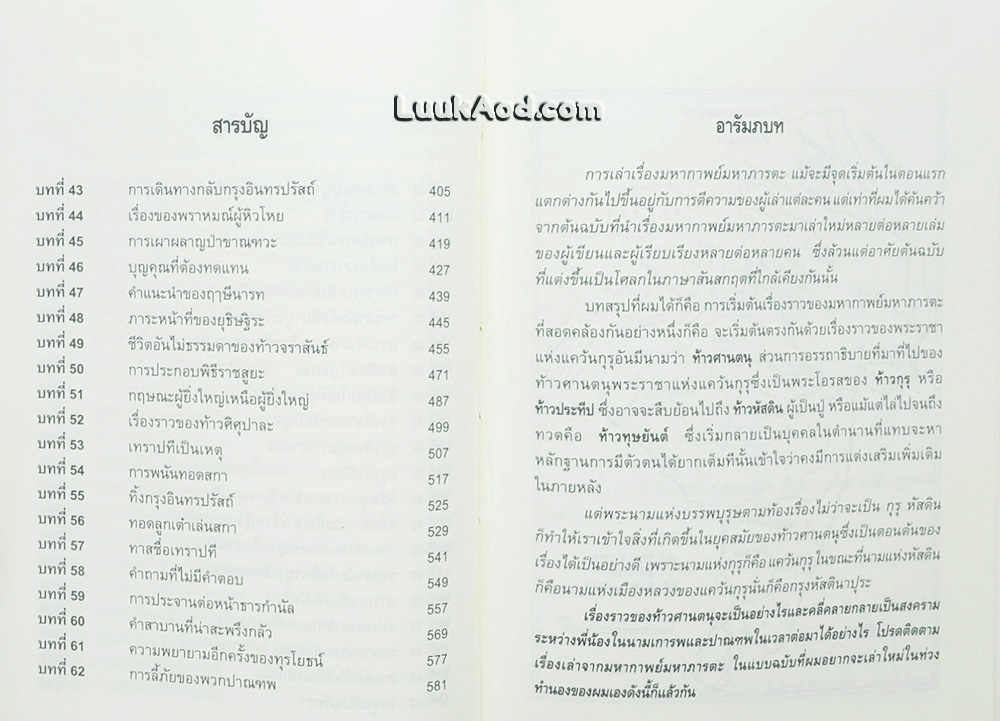 LuukAod.com
สารบัญ
บทที่ 43 การเดินทางกลับกรุงอินทรปรัสถ์ 405
บทที่ 44 เรื่องของพราหมณ์ผู้หิวโหย 411
บทที่ 45 การเผาผลาญป่าขาณฑวะ 419
บทที่ 46 บุญคุณที่ต้องทดแทน 427
บทที่ 47 คำแนะนำของฤาษีนารท 439
บทที่ 48 ภาระหน้าที่ของยุธิษฐิระ 445
บทที่ 49 ชีวิตอันไม่ธรรมดาของท้าวจราสันธ์ 455
บทที่ 50 การประกอบพิธีราชสูยะ 471
บทที่ 51 กฤษณะผู้ยิ่งใหญ่เหนือผู้ยิ่งใหญ่ 487
บทที่ 52 เรื่องราวของท้าวศิศุปาละ 499
บทที่ 53 เทราปทีเป็นเหตุ 507
บทที่ 54 การพนันทอดสกา 517
บทที่ 55 ทิ้งกรุงอินทรปรัสถ์ 525
บทที่ 56 ทอดลูกเต๋าเล่นสกา 529
บทที่ 57 ทาสชื่อเทราปที 541
บทที่ 58 คำถามที่ไม่มีคำตอบ 549
บทที่ 59 การประจานต่อหน้าธารกำนัล 557
บทที่ 60 คำสาบานที่น่าสะพรึงกลัว 569
บทที่ 61 ความพยายามอีกครั้งของทุรโยธน์ 577
บทที่ 62 การลี้ภัยของพวกปาณฑพ 581
อารัมภบท
การเล่าเรื่องมหากาพย์มหาภารตะ แม้จะมีจุดเริ่มต้นในตอนแรก
แตกต่างกันไปขึ้นอยู่กับการตีความของผู้เล่าแต่ละคน แต่เท่าที่ผมได้ค้นคว้า
จากต้นฉบับที่นำเรื่องมหากาพย์มหาภารตะมาเล่าใหม่หลายต่อหลายเล่ม
ของผู้เขียนและผู้เรียบเรียงหลายต่อหลายคน ซึ่งล้วนแต่อาศัยต้นฉบับ
ที่แต่งขึ้นเป็นโศลกในภาษาสันสกฤตที่ใกล้เคียงกันนั้น
บทสรุปที่ผมได้ก็คือ การเริ่มต้นเรื่องราวของมหากาพย์มหาภารตะ
ที่สอดคล้องกันอย่างหนึ่งก็คือ จะเริ่มต้นตรงกันด้วยเรื่องราวของพระราชา
แห่งแคว้นกุรุอันมีนามว่า ท้าวศานตนุ ส่วนการอรรถาธิบายที่มาที่ไปของ
ท้าวศานตนุพระราชาแห่งแคว้นกุรุซึ่งเป็นพระโอรสของ ท้าวกุรุ หรือ
ท้าวประทีป ซึ่งอาจจะสืบย้อนไปถึง ท้าวหัสดิน ผู้เป็นปู่ หรือแม้แต่ไล่ไปจนถึง
ทวดคือ ท้าวทุษยันต์ ซึ่งเริ่มกลายเป็นบุคคลในตำนานที่แทบจะหา
หลักฐานการมีตัวตนได้ยากเต็มทีนั้นเข้าใจว่าคงมีการแต่งเสริมเพิ่มเติม
ในภายหลัง
แต่พระนามแห่งบรรพบุรุษตามท้องเรื่องไม่ว่าจะเป็น กุรุ หัสดิน
ก็ทำให้เราเข้าใจสิ่งที่เกิดขึ้นในยุคสมัยของท้าวศานตนุซึ่งเป็นตอนต้นของ
เรื่องได้เป็นอย่างดี เพราะนามแห่งกุรุก็คือแคว้นกุรุในขณะที่นามแห่งหัสดิน
ก็คือนามแห่งเมืองหลวงของแคว้นกุรุนั่นก็คือกรุงหัสตินาปุระ
เรื่องราวของท้าวศานตนุจะเป็นอย่างไรและคลี่คลายกลายเป็นสงคราม
ระหว่างพี่น้องในนามเการพและปาณฑพในเวลาต่อมาได้อย่างไร โปรดติดตาม
เรื่องเล่าจากมหากาพย์มหาภารตะ ในแบบฉบับที่ผมอยากจะเล่าใหม่ในท่วง
ทำนองของผมเองดังนี้ก็แล้วกัน